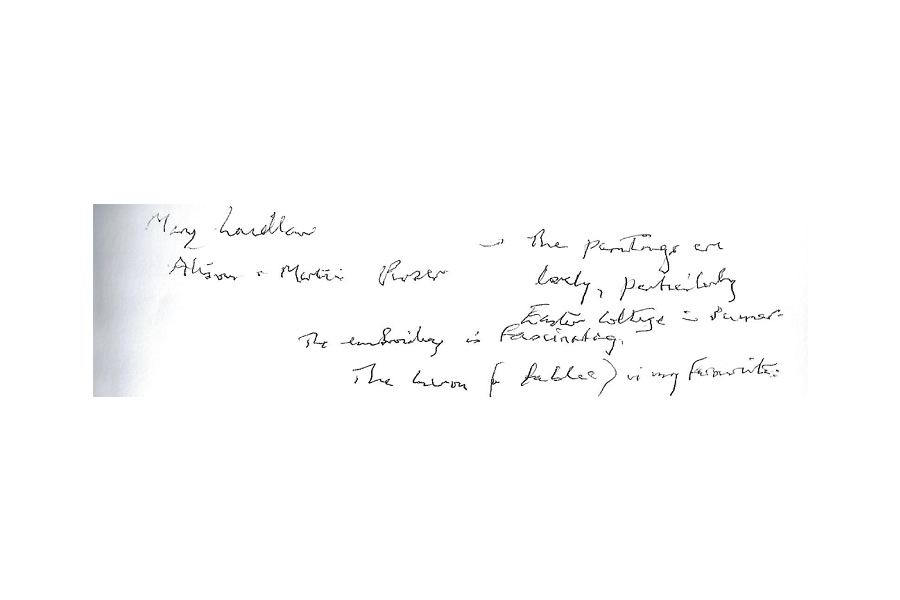 Mary Laidlaw
→ The paintings are
Alison + Martin Prosser
lovely, particularly
Easter Cottage in Summer.
The embroidery is fascinating.
The heron ( ) is my favourite.